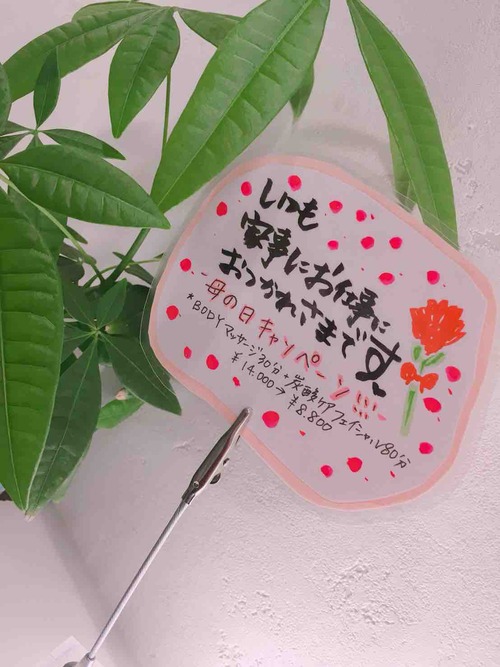 いつも
家事にお仕事に
おつかれさまです。
-母の日キャンペーン!!!-
*BODYマッサージ30分+炭酸ケアフェイシャル80分
¥14.000→¥8.800